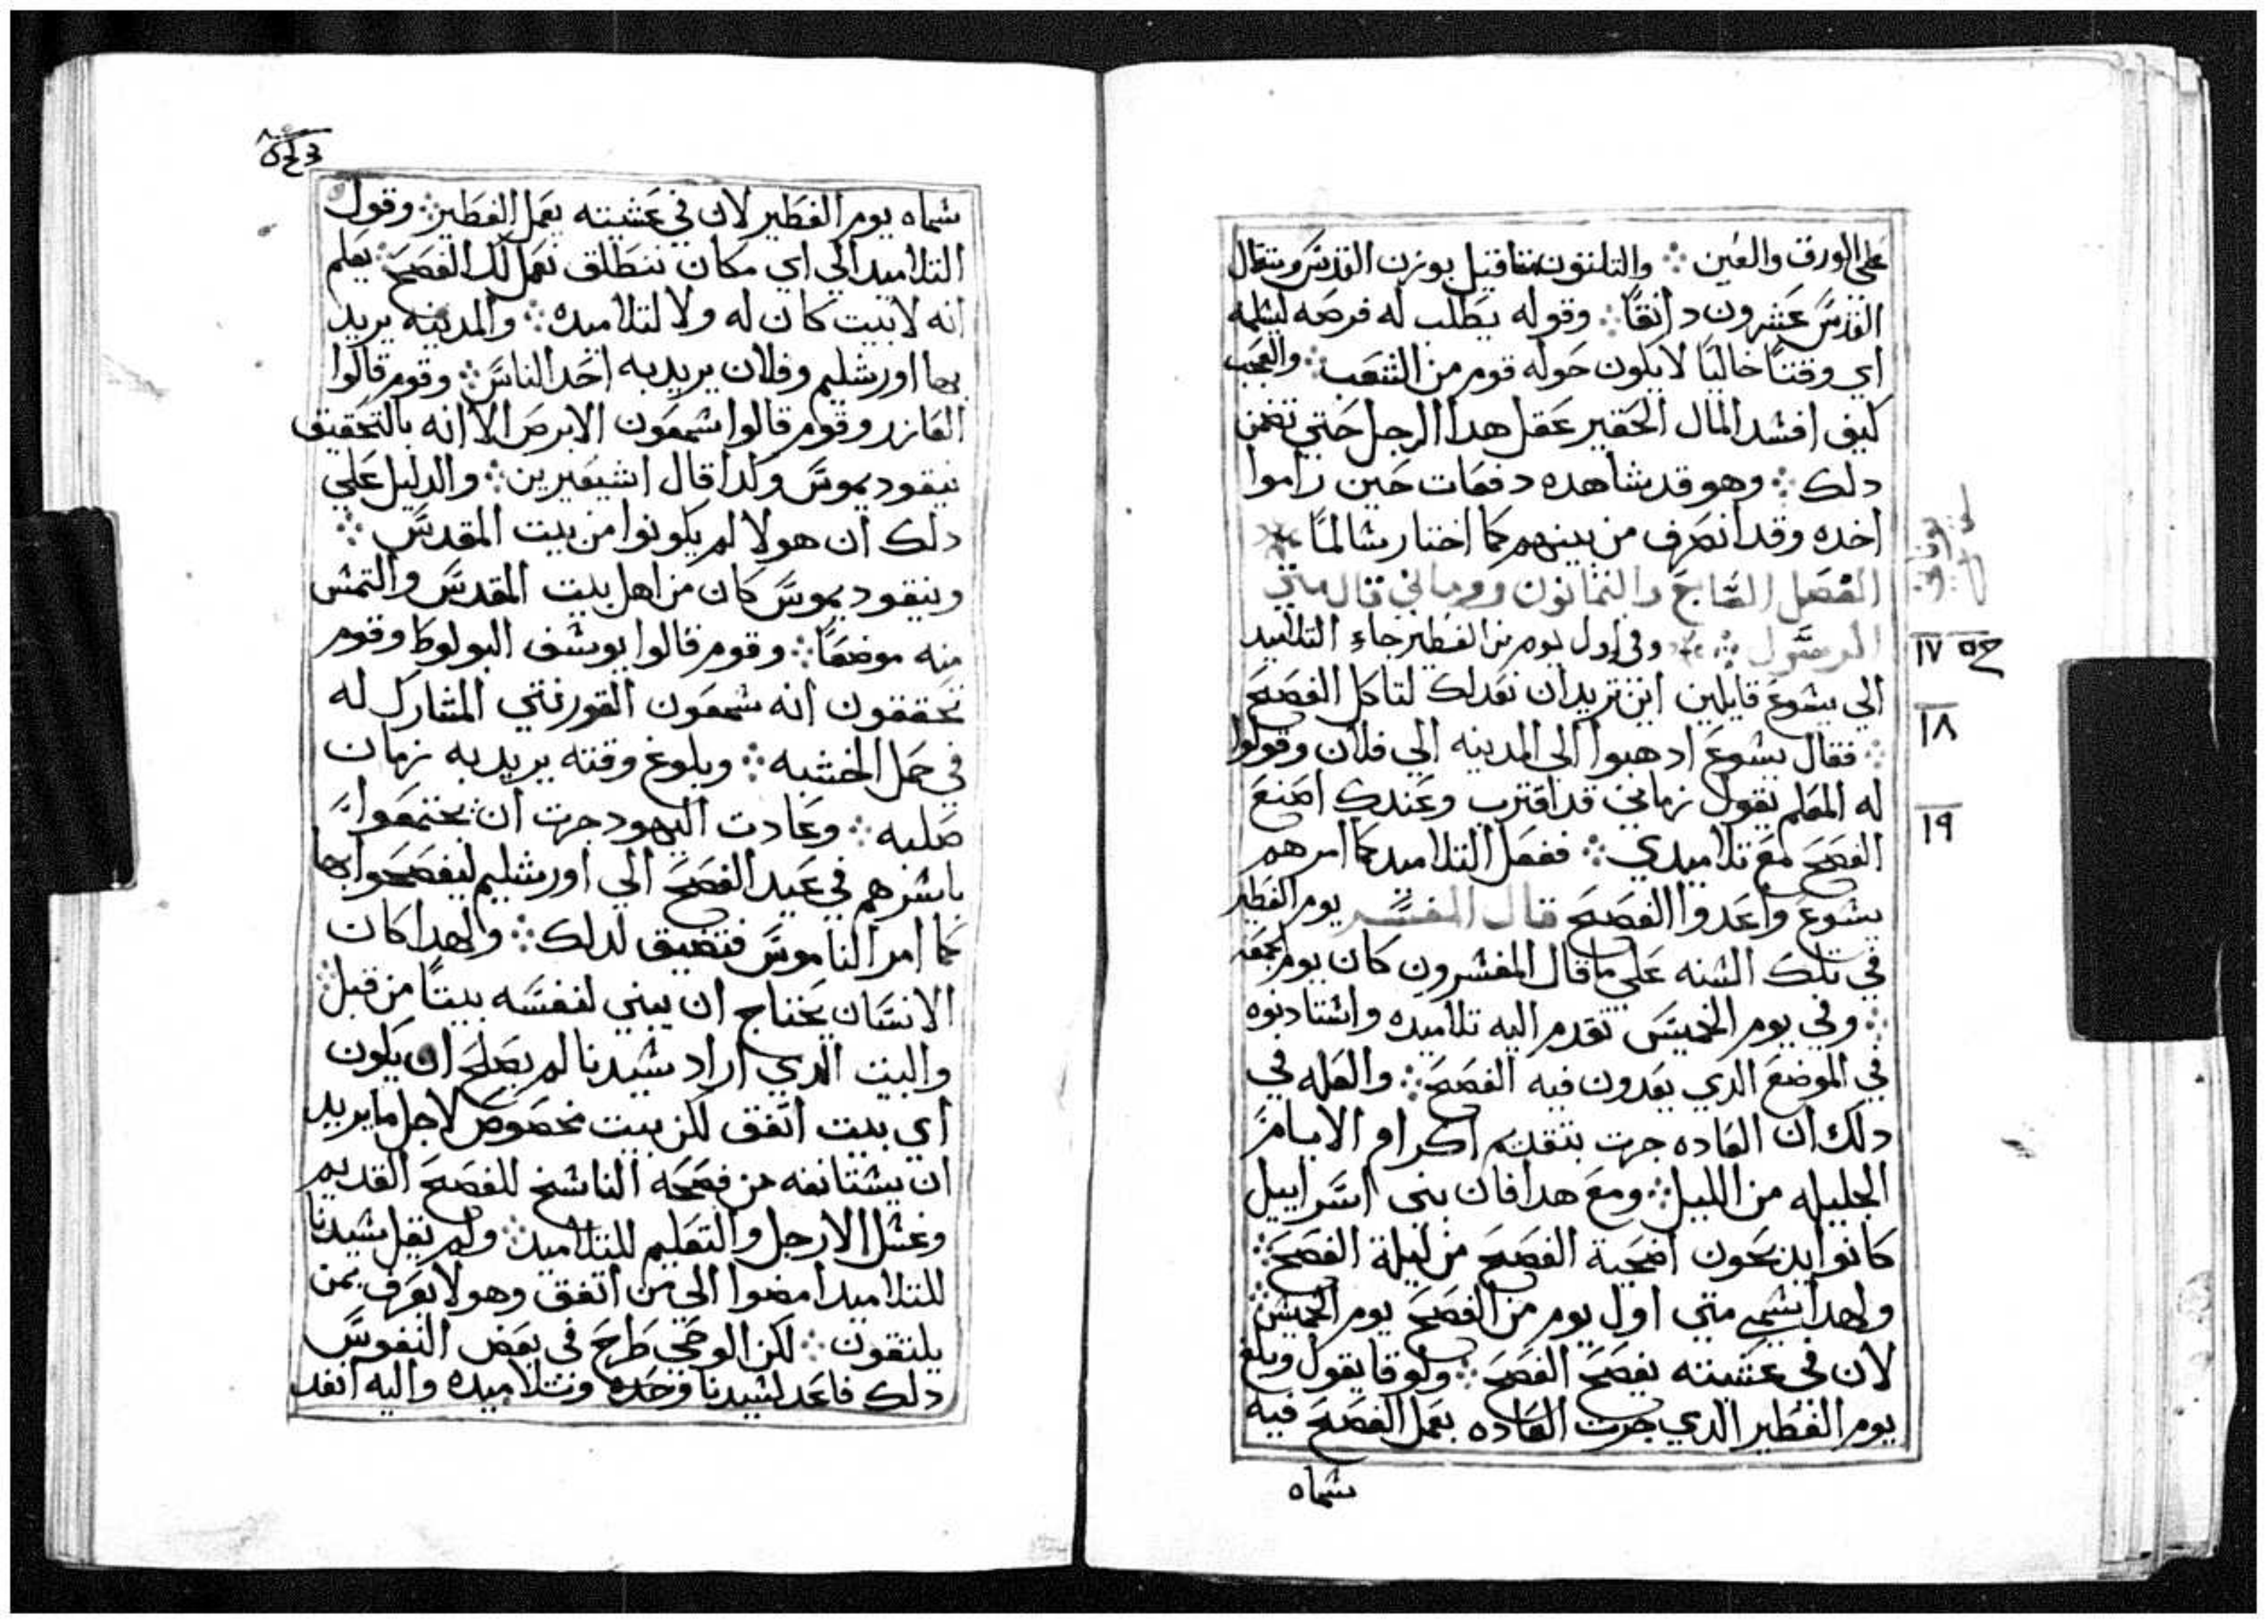 علي الورق والعين ⁘ والتلتون مثاقيل بوزن القدس ومثقال
القدس عشرون دانقًا ⁘ وقوله يطلب له فرصه ليسلمه
اي وقتًا خاليًا لا يكون حوله قوم من الشعب ⁘ والعجب
كيف افسد المال الحقير عقل هدا الرجل حتي تضمن
دلك ⁘ وهو قد شاهده دفعات حين راموا
اخده وقد انصرف من بينهم كما اختار سالمًا
الفصل السابع والثمانون روماني قال متي
الرسول ⁘ وفي اول يوم من الفطير جاء التلاميد
الي يسوع قايلين اين تريد ان نعد لك لتاكل الفصح
⁘ فقال يسوع ادهبوا الي المدينه الي فلان وقولوا
له المعلم يقول زماني قد اقترب وعندك اصنع
الفصح مع تلاميدي ⁘ ففعل التلاميد كما امرهم
يسوع واعدوا الفصح قال المفسر يوم الفطير
في تلك السنه علي ما قال المفسرون كان يوم الجمعه
⁘ وفي يوم الخميس تقدم اليه تلاميده واستادنوه
في الموضع الدي يعدون فيه الفصح ⁘ والعله في
دلك ان العاده جرت بتقدم اكرام الايام
الجليله من الليل ⁘ ومع هدا فان بني اسراييل
كانوا يدبحون اضحية الفصح من ليلة الفصح ⁘
ولهدا يسمي متي اول يوم من الفصح يوم الخميس ⁘
لان في عشيته يفصح الفصح ⁘ ولوقا يقول وبلغ
يوم الفطير الدي جرت العاده بعمل الفصح فيه
سماه
١٧
١٨
١٩
سماه يوم الفطير لان في عشيته يعمل الفطير ⁘ وقول
التلاميد الي اي مكان ننطلق نعمل لك الفصح ⁘ يعلم
انه لا بيت كان له ولا لتلاميده ⁘ والمدينه يريد
بها اورشليم وفلان يريد به احد الناس ⁘ وقوم قالوا
العازر وقوم قالوا سمعون الابرص الا انه بالتحقيق
نيقوديموس ولدا قال اشيعيرين ⁘ والدليل علي
دلك ان هولا لم يكونوا من بيت المقدس ⁘
ونيقوديموس كان من اهل بيت المقدس والتمس
منه موضعًا ⁘ وقوم قالوا يوسف البولوطا وقوم
يحققون انه سمعون القورنتي المشارك له
في حمل الخشبه ⁘ وبلوغ وقته يريد به زمان
صلبه ⁘ وعادت اليهود جرت ان يجتمعوا
باسرهم في عيد الفصح الي اورشليم ليفصحوا بها
كما امر الناموس فتضيق لدلك ⁘ ولهدا كان
الانسان يحتاج ان يبني لنفسه بيتًا من قبل ⁘
والبيت الدي اراد سيدنا لم يصلح ان يكون
اي بيت اتفق لكن بيت مخصوص لاجل ما يريد
ان يستانفه من فصحه الناسخ للفصح القديم
وغسل الارجل والتعليم للتلاميد ⁘ ولم يقل سيدنا
للتلاميد امضوا الي من اتفق وهو لا يعرف بمن
يلتقون ⁘ لكن الوحي طرح في بعض النفوس
دلك فاعد لسيدنا وحده وتلاميده واليه انفد